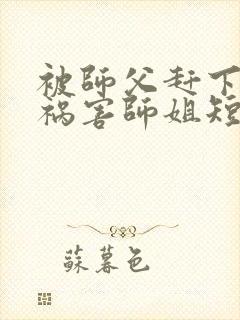 被師父赶下
祸害師姐短
蘇暮色